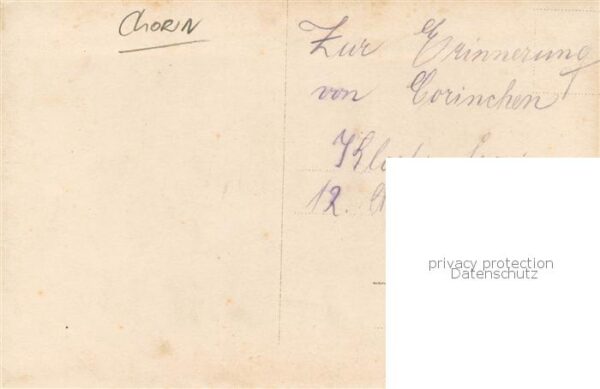 CHORIN
Zur Erinnerung
von Corinchen
12.
privacy protection
Datenschutz